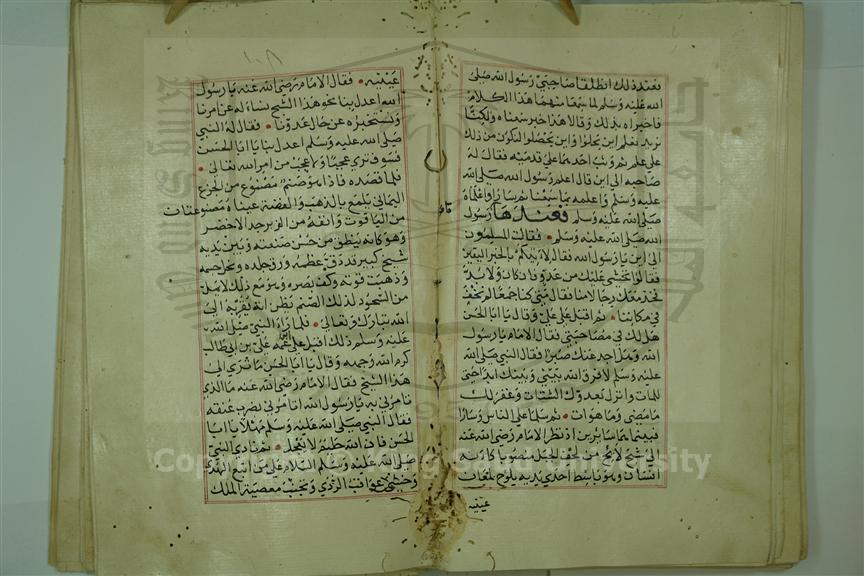 فعند ذلك انطلقا صاحبي رسول الله صلى
الله عليه وسلم لما سمعا منهما هذا الكلام
فاخبراه بذلك وقالا هذا خبر سمعناه ولكنا
نريد نعلم اين يحلوا واين يحصلوا لنكون من ذلك
على علم ثم وثب احدهما على قدميه فقال له
صاحبه الى اين قال اعلم رسول الله صلى الله
عليه وسلم واعلمه بما سمعنا ثم سارا واعلماه
صلى الله عليه وسلم فعندها رسول
الله صلى الله عليه وسلم فقالت المسلمون
الى اين يا رسول الله فقال لاتيكم بالخبر اليقين
فقالوا نخشى عليك من عدو فان كان ولا بد
تخذ معك رجالا منا فقال متى كنا جمعا لم نخف
في مكاننا ثم اقبل على علي وقال يا ابا الحسن
هل لك في مصاحبتي فقال الامام يا رسول
الله وهل اجد عنك صبرا فقال النبي صلى الله
عليه وسلم لا فرق الله بيني وبينك ابدا حتى
الممات وانزل بعدوك الشتات وغفر لك
ما مضى وما هوات ثم سلما على الناس وسارا
فبينما هما سايرين اذ نظر الامام رضي الله عنه
الى شيخ من لحف الجبل منصوبا كانه
انسان وهو باسط احدى يديه يلوح لمعات
عينيه
عينيه فقال الامام رضي الله عنه يا رسول
الله اعدل بنا نحو هذا الشيخ نساله عن امرنا
ونستخبره عن حال عدونا فقال له النبي
صلى الله عليه وسلم اعدل بنا يا ابا الحسن
فسوف ترى عجبا واعجب من امر الله تعالى
فلما قصده فاذا هو صنم مصنوع من الجزع
اليماني يلمع بالذهب والفضة عيناه مصنوعتان
من الياقوت وانفه من الزبرجد الاخضر
وهو كانه ينطق من حسن صنعته وبين يديه
شيخ كبير قد دق عظمه ورق جلده ونحل جسمه
وذهبت قوته وكف بصره وهو مع ذلك لا يمل
من السجود لذلك الصنم يظن انه يقربه الى
الله تبارك وتعالى فلما راه النبي صلى الله
عليه وسلم ذلك اقبل على عمه علي بن ابي طالب
كرم الله وجهه وقال يا ابا الحسن ما ترى الى
هذا الشيخ فقال الامام رضي الله عنه ما الذي
تامرني به يا رسول الله اتامرني بضرب عنقه
فقال النبي صلى الله عليه وسلم مهلا يا ابا
الحسن فان الله حليم لا يعجل ثم نادى النبي
صلى الله عليه وسلم السلام على من اتبع الهدى
وخشي عواقب الردى وتجنب معصية الملك
Copyright © King Saud University